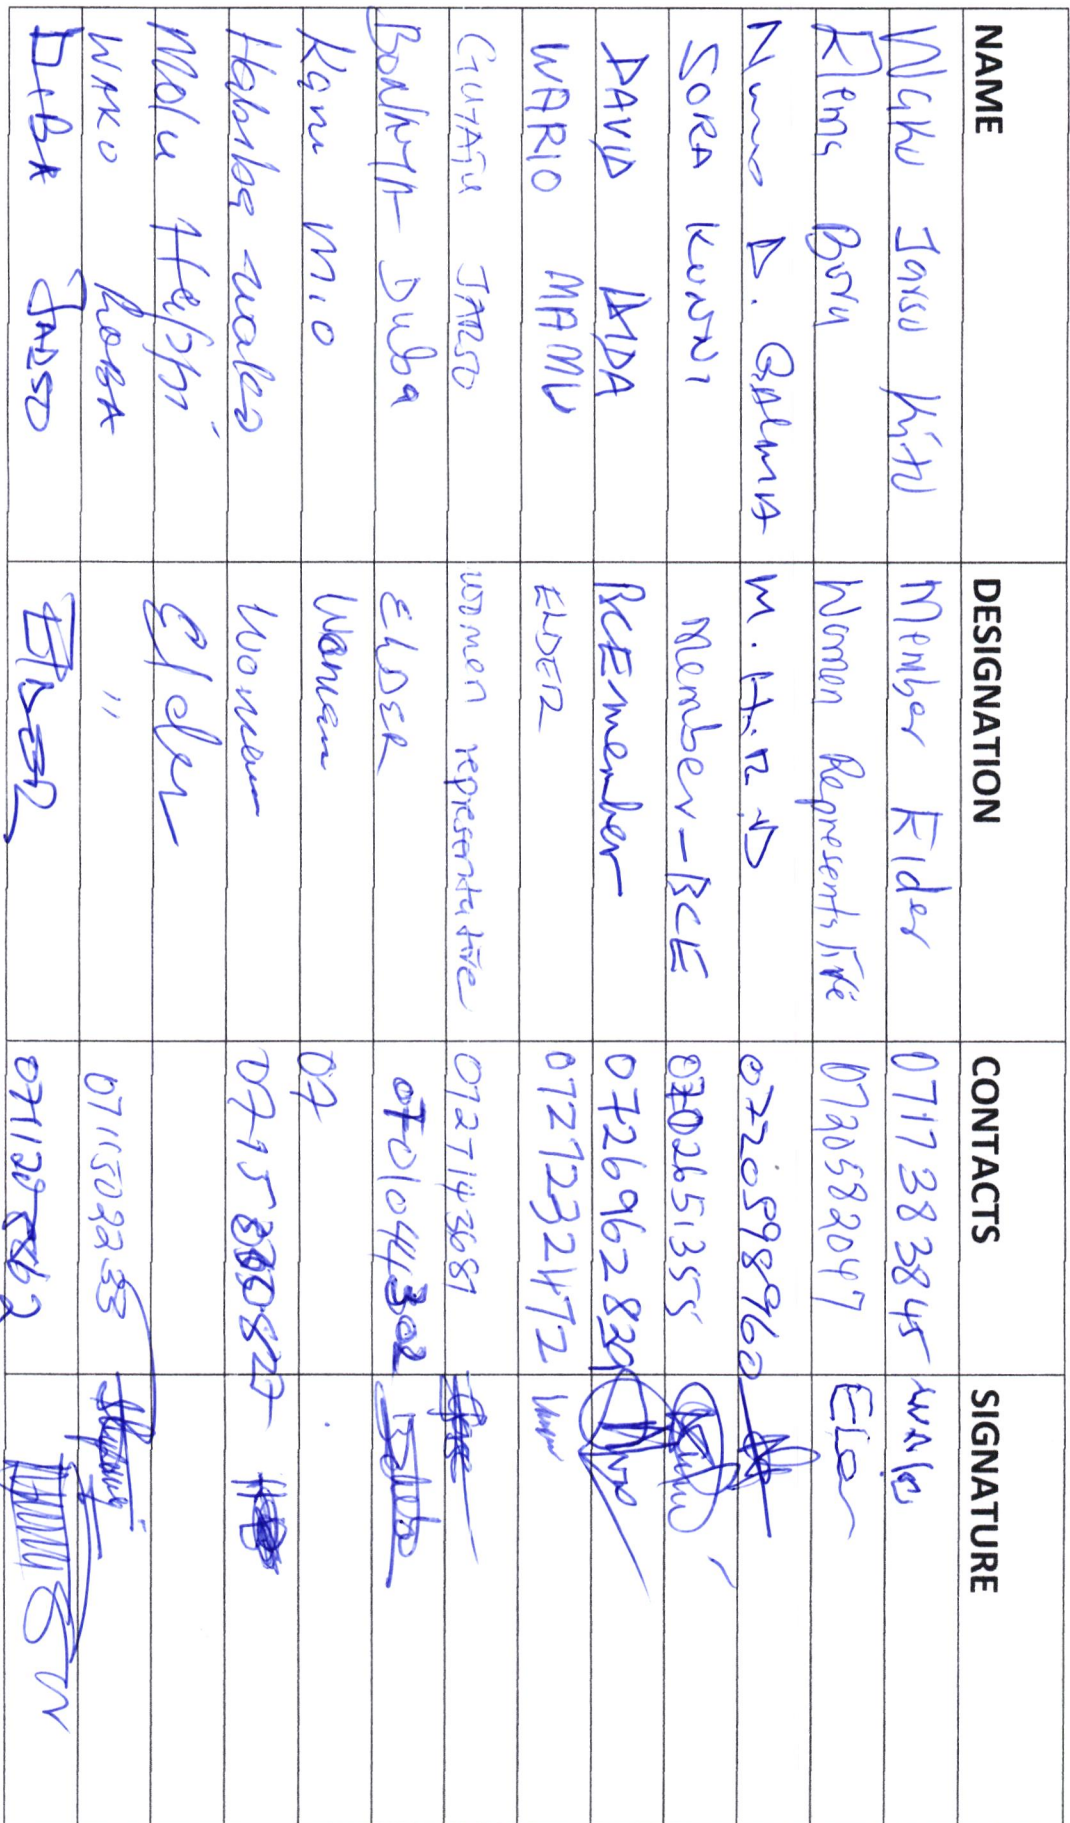 NAME DESIGNATION CONTACTS SIGNATURE
Waku Jarso Kitu Member Elder 0717383845
Elema Boru Women Representative 0720582047 Ele
Numo D. GALMA M.H.R.D 0720598960
SORA KUNNI Member-BCE 0702651355
DAVID DIDA BCE member 072696282
WARIO MAMU ELDER 0727232472
GUYATU JARSO women representative 0727143681
BONAYA Duba ELDER 0701044302
Kanu MIO Woman 07
Habiba wako Woman 0715300827
Molu Woman Elder
WAKO ROBA " 0711502233
DIBA JARSO ELDER 0711207862